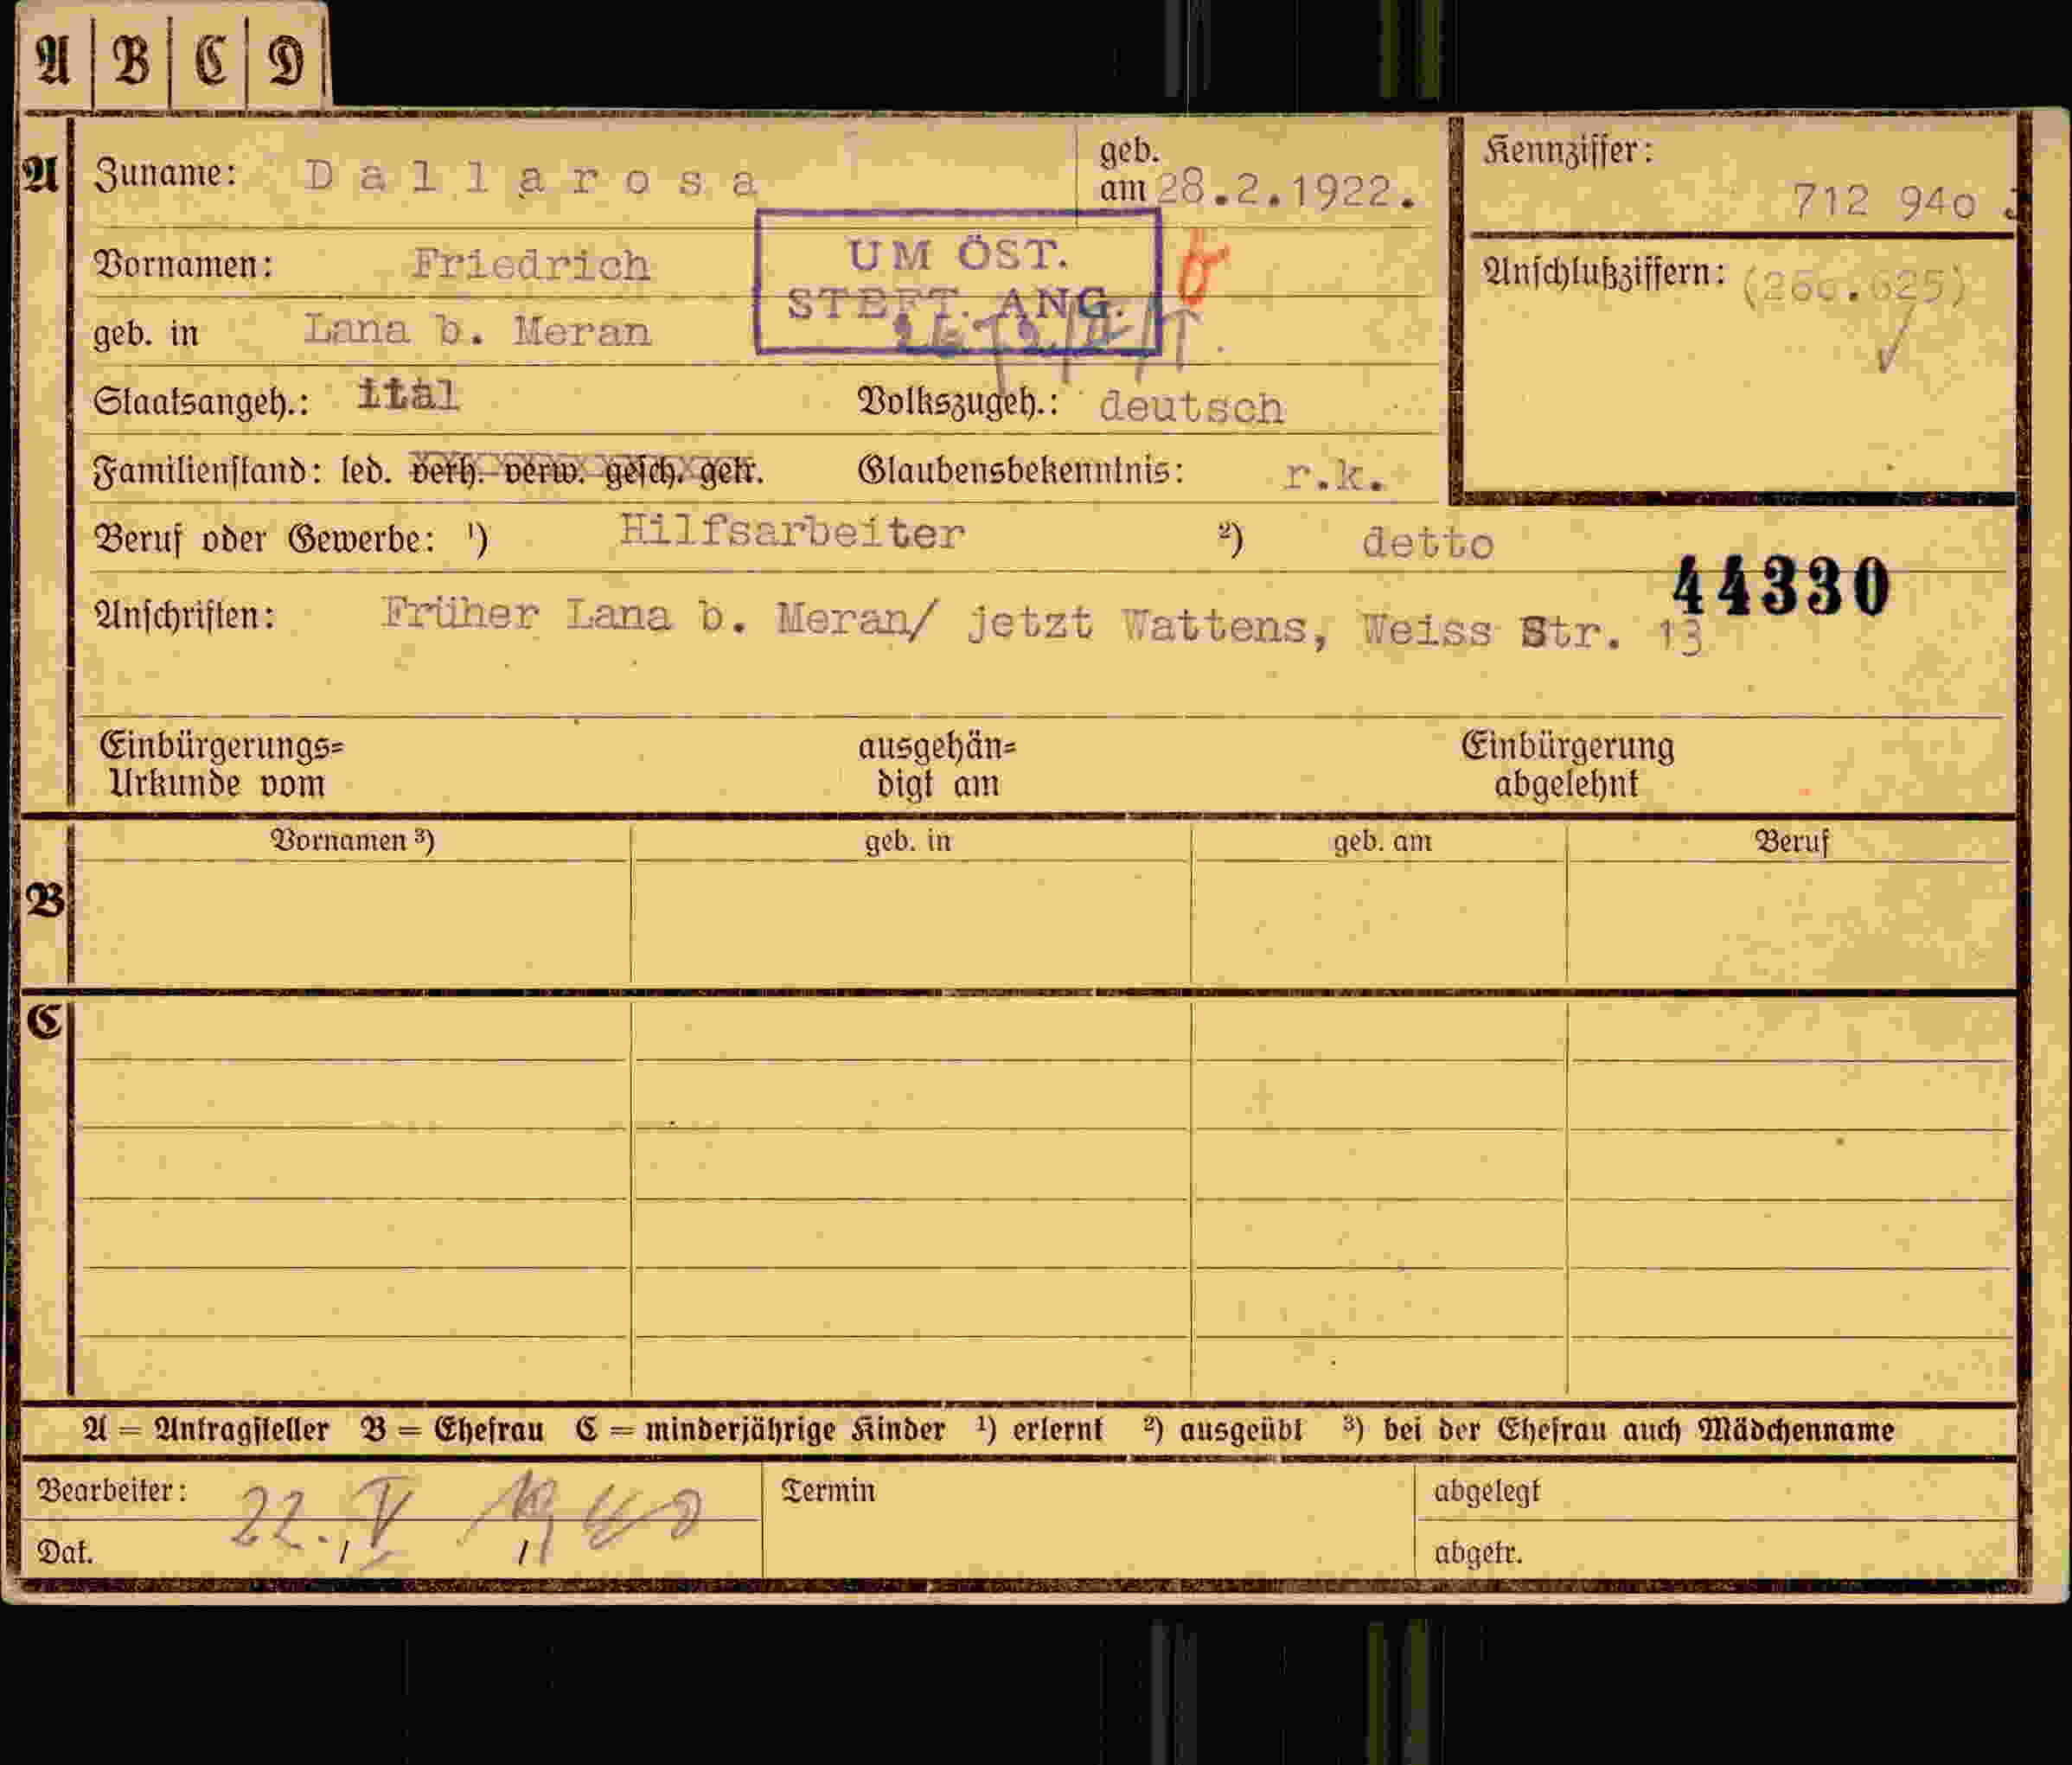 A B C D
A Zuname: Dallarosa geb. am 28.2.1922. Kennziffer: 712 940
Vornamen: Friedrich UM ÖST. STBFT. ANG. Anschlußziffern:
geb. in Lana b. Meran
Staatsangeh.: ital Volkszugeh.: deutsch
Familienstand: led. verh. verw. gesch. getr. Glaubensbekenntnis: r.k.
Beruf oder Gewerbe: ¹) Hilfsarbeiter ²) detto
44330
Anschriften: Früher Lana b. Meran/ jetzt Wattens, Weiss Str. 13
Einbürgerungs= ausgehän= Einbürgerung
Urkunde vom digt am abgelehnt
B Vornamen ³) geb. in geb. am Beruf
C
A = Antragsteller B = Ehefrau C = minderjährige Kinder ¹) erlernt ²) ausgeübt ³) bei der Ehefrau auch Mädchenname
Bearbeiter: Termin abgelegt
22. V
Dat. abgetr.